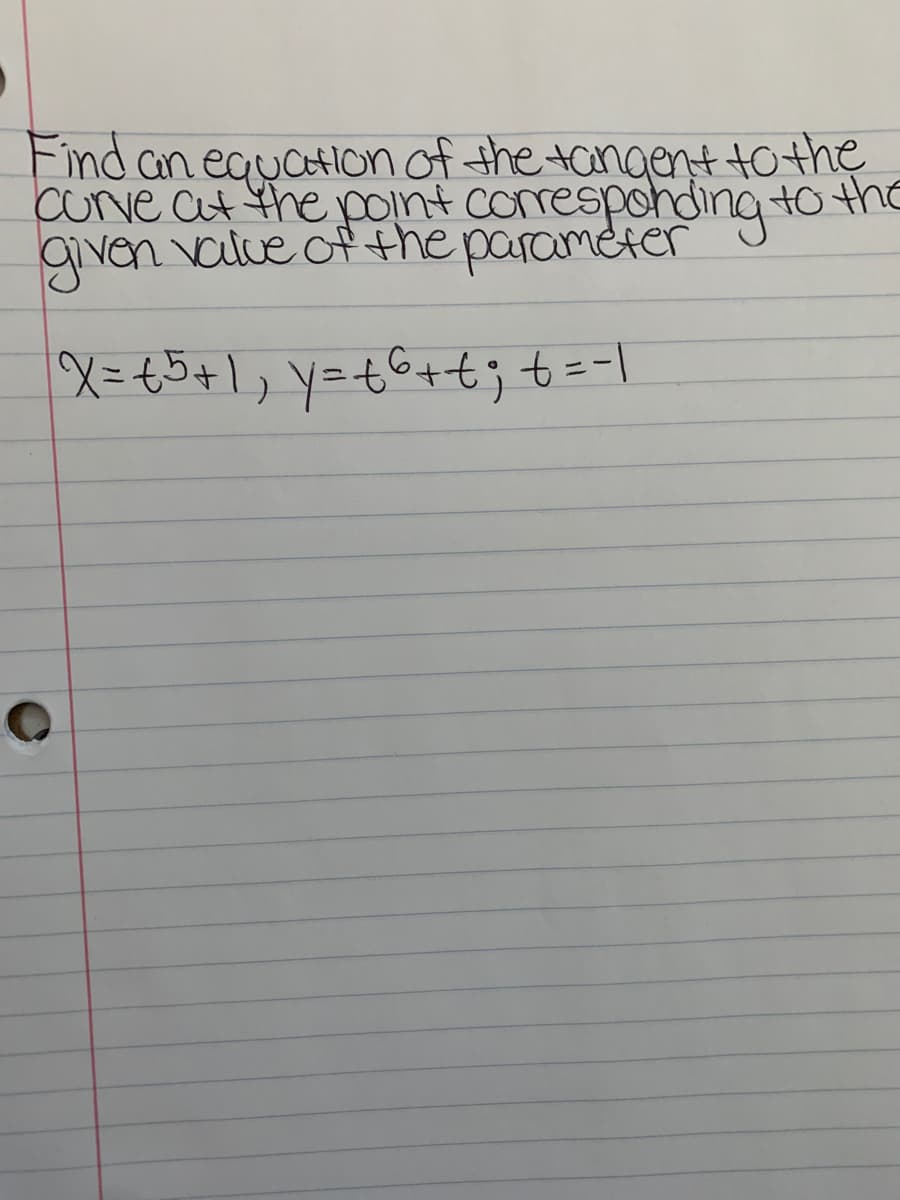 Find an equation of the tangent to the
curve at the point corresponding to the
given value of the parameter
x=t⁵+1, y=t⁶+t; t=-1